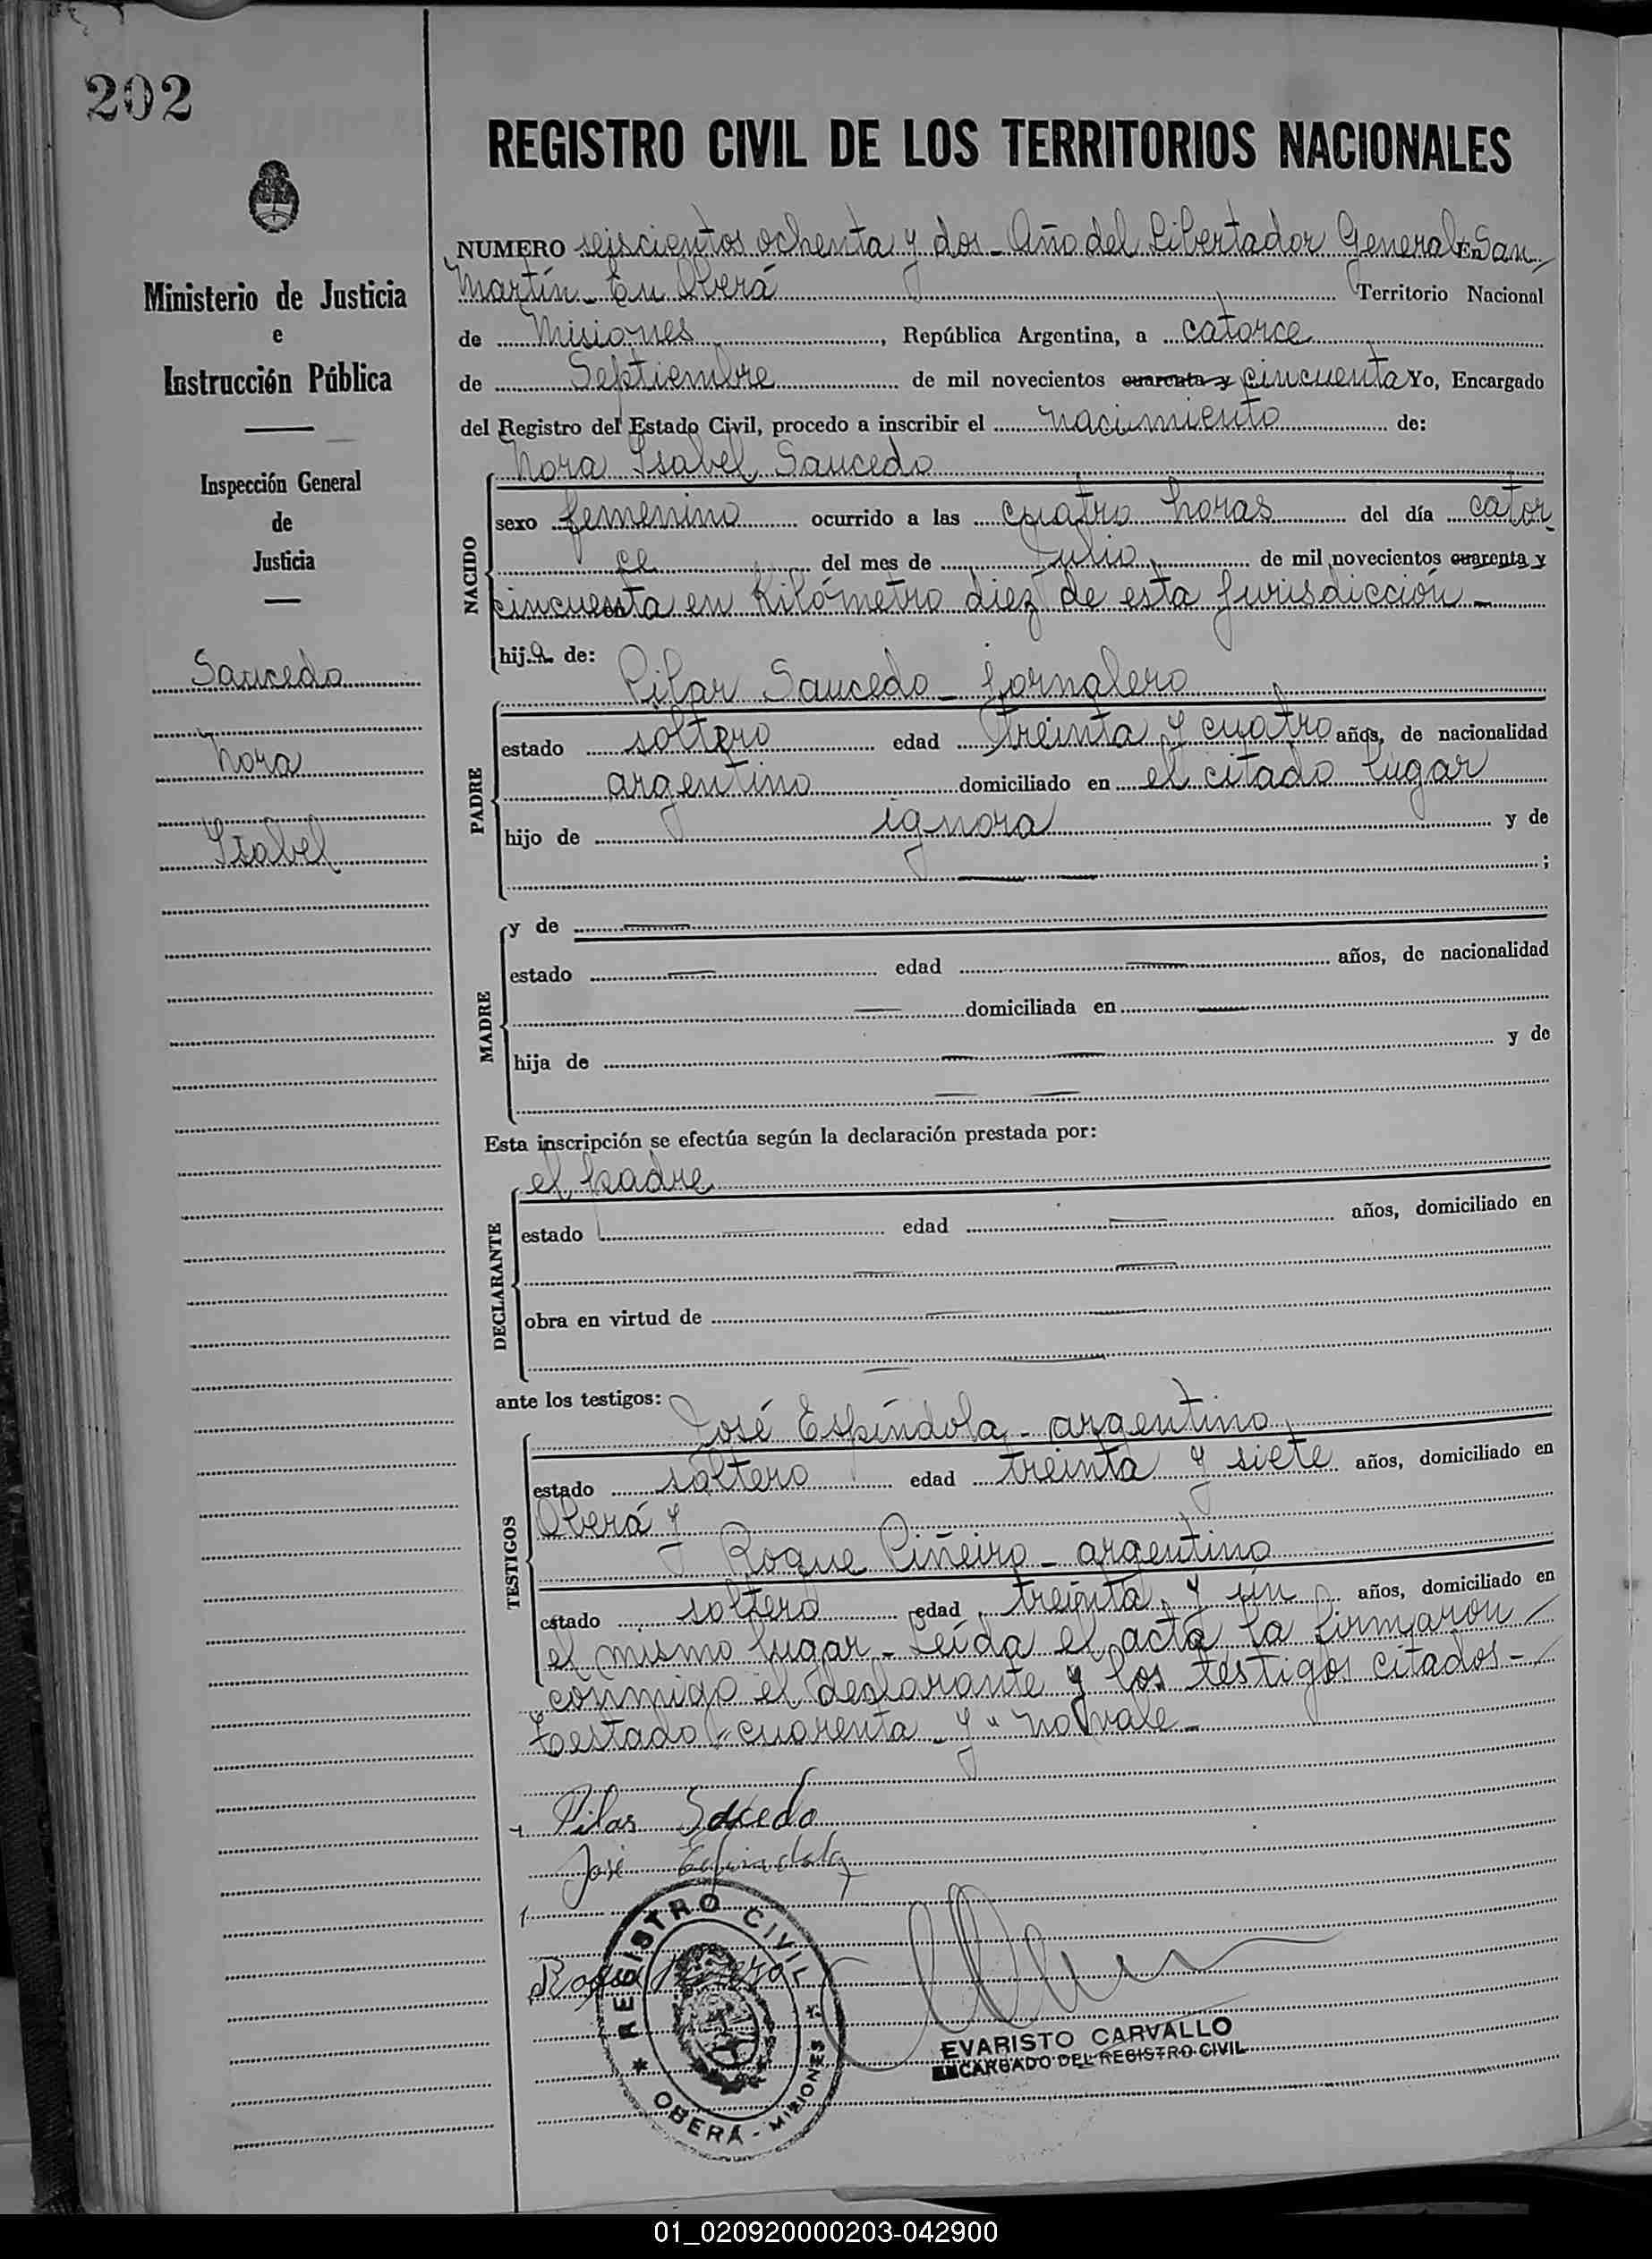 202
REGISTRO CIVIL DE LOS TERRITORIOS NACIONALES
Ministerio de Justicia
e
Instrucción Pública
Inspección General
de
Justicia
Saucedo
Nora
Isabel
NUMERO seiscientos ochenta y dos - Año del Libertador General En San
Martín - En Oberá Territorio Nacional
de Misiones, República Argentina, a catorce
de Septiembre de mil novecientos cuarenta y cincuenta Yo, Encargado
del Registro del Estado Civil, procedo a inscribir el nacimiento de:
NACIDO
Nora Isabel Saucedo
sexo femenino ocurrido a las cuatro horas del día cator
ce del mes de Julio de mil novecientos cuarenta y
cincuenta en Kilómetro diez de esta jurisdicción -
hija de:
PADRE
Pilar Saucedo - Jornalero
estado soltero edad treinta y cuatro años, de nacionalidad
argentino domiciliado en el citado lugar
hijo de ignora y de
;
MADRE
y de
estado edad años, de nacionalidad
domiciliada en
hija de y de
Esta inscripción se efectúa según la declaración prestada por:
DECLARANTE
el padre
estado edad años, domiciliado en
obra en virtud de
ante los testigos:
TESTIGOS
José Espíndola - argentino
estado soltero edad treinta y siete años, domiciliado en
Oberá y
Roque Piñeiro - argentino
estado soltero edad treinta y un años, domiciliado en
el mismo lugar - Leída el acta la firmaron
conmigo el declarante y los testigos citados -
Testado "cuarenta - y" no vale -
Pilar Socedo
José Espindola
Roque
REGISTRO CIVIL
OBERÁ - MISIONES
EVARISTO CARVALLO
ENCARGADO DEL REGISTRO CIVIL
01_020920000203-042900